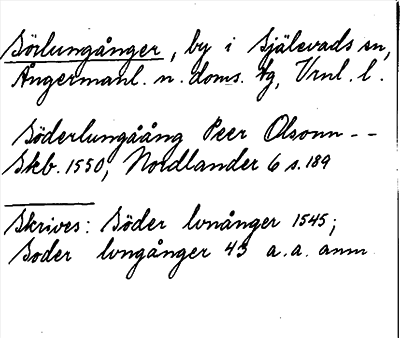 Sörlungånger, by i Själevads sn,
Ångermanl. n. doms. tg, Vrnl. l.
Söderlungåång Peer Olsonn --
Skb. 1550, Nordlander 6 s. 189
Skrives: Söder lvnånger 1545;
Soder lvngånger 43 a.a. anm